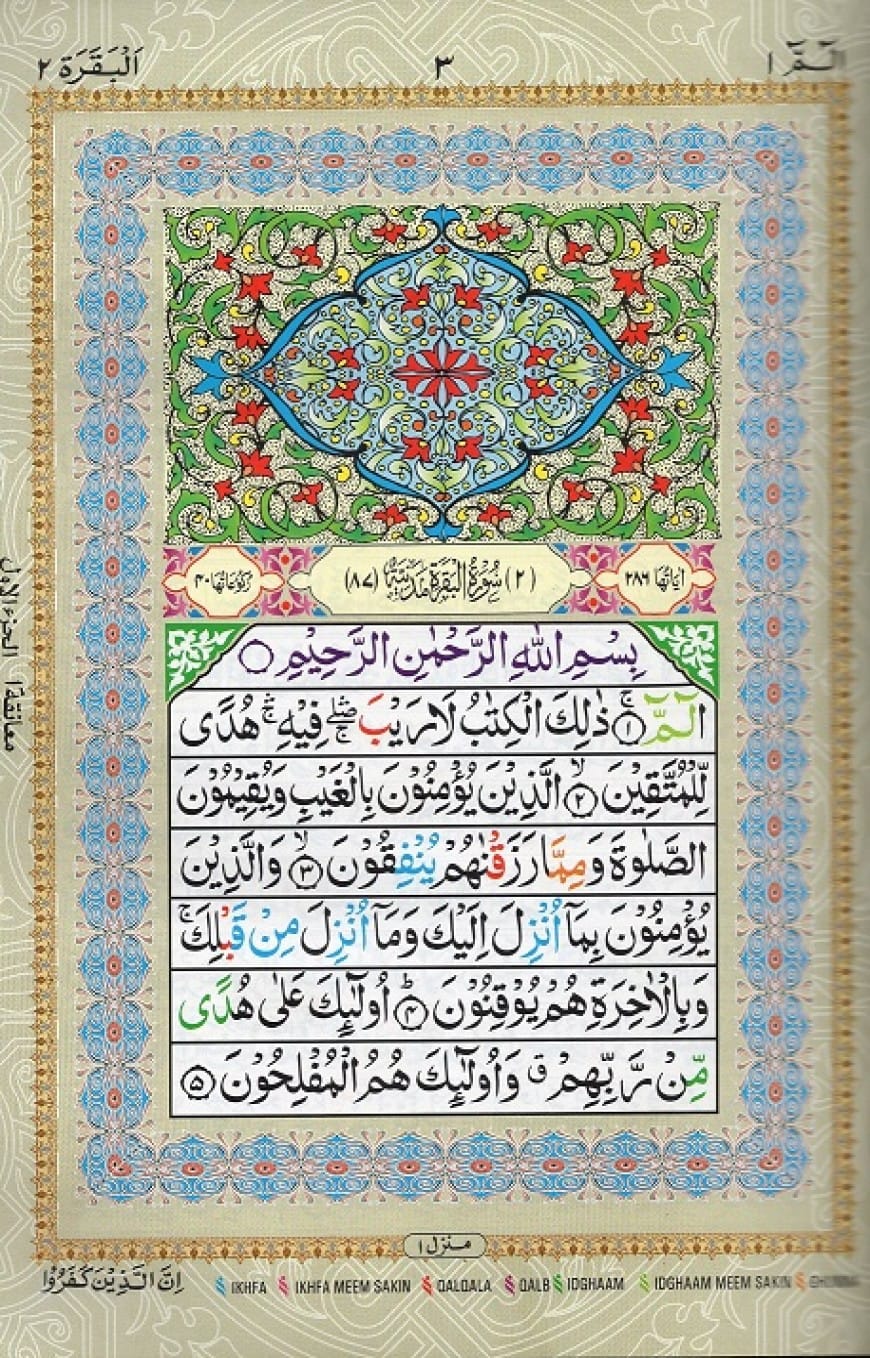 الٓمّٓ ١
٣
اَلْبَقَرَة ٢
اٰيَاتُهَا ٢٨٦
(٢) سُوْرَةُ الْبَقَرَةِ مَدَنِيَّةٌ (٨٧)
رُكُوْعَاتُهَا ٤٠
بِسْمِ اللّٰهِ الرَّحْمٰنِ الرَّحِيْمِ
الٓمّٓ ۚ ١ ذٰلِكَ الْكِتٰبُ لَا رَيْبَ ۛۖۚ فِيْهِ ۛۚ هُدًى
لِّلْمُتَّقِيْنَ ۙ ٢ الَّذِيْنَ يُؤْمِنُوْنَ بِالْغَيْبِ وَيُقِيْمُوْنَ
الصَّلٰوةَ وَمِمَّا رَزَقْنٰهُمْ يُنْفِقُوْنَ ۙ ٣ وَالَّذِيْنَ
يُؤْمِنُوْنَ بِمَآ اُنْزِلَ اِلَيْكَ وَمَآ اُنْزِلَ مِنْ قَبْلِكَ ۚ
وَبِالْاٰخِرَةِ هُمْ يُوْقِنُوْنَ ؕ ٤ اُولٰٓئِكَ عَلٰى هُدًى
مِّنْ رَّبِّهِمْ ۗ وَاُولٰٓئِكَ هُمُ الْمُفْلِحُوْنَ ٥
معانقة ١ الجزء الاول
منزل ١
اِنَّ الَّذِيْنَ كَفَرُوْا
IKHFA IKHFA MEEM SAKIN QALQALA QALB IDGHAAM IDGHAAM MEEM SAKIN